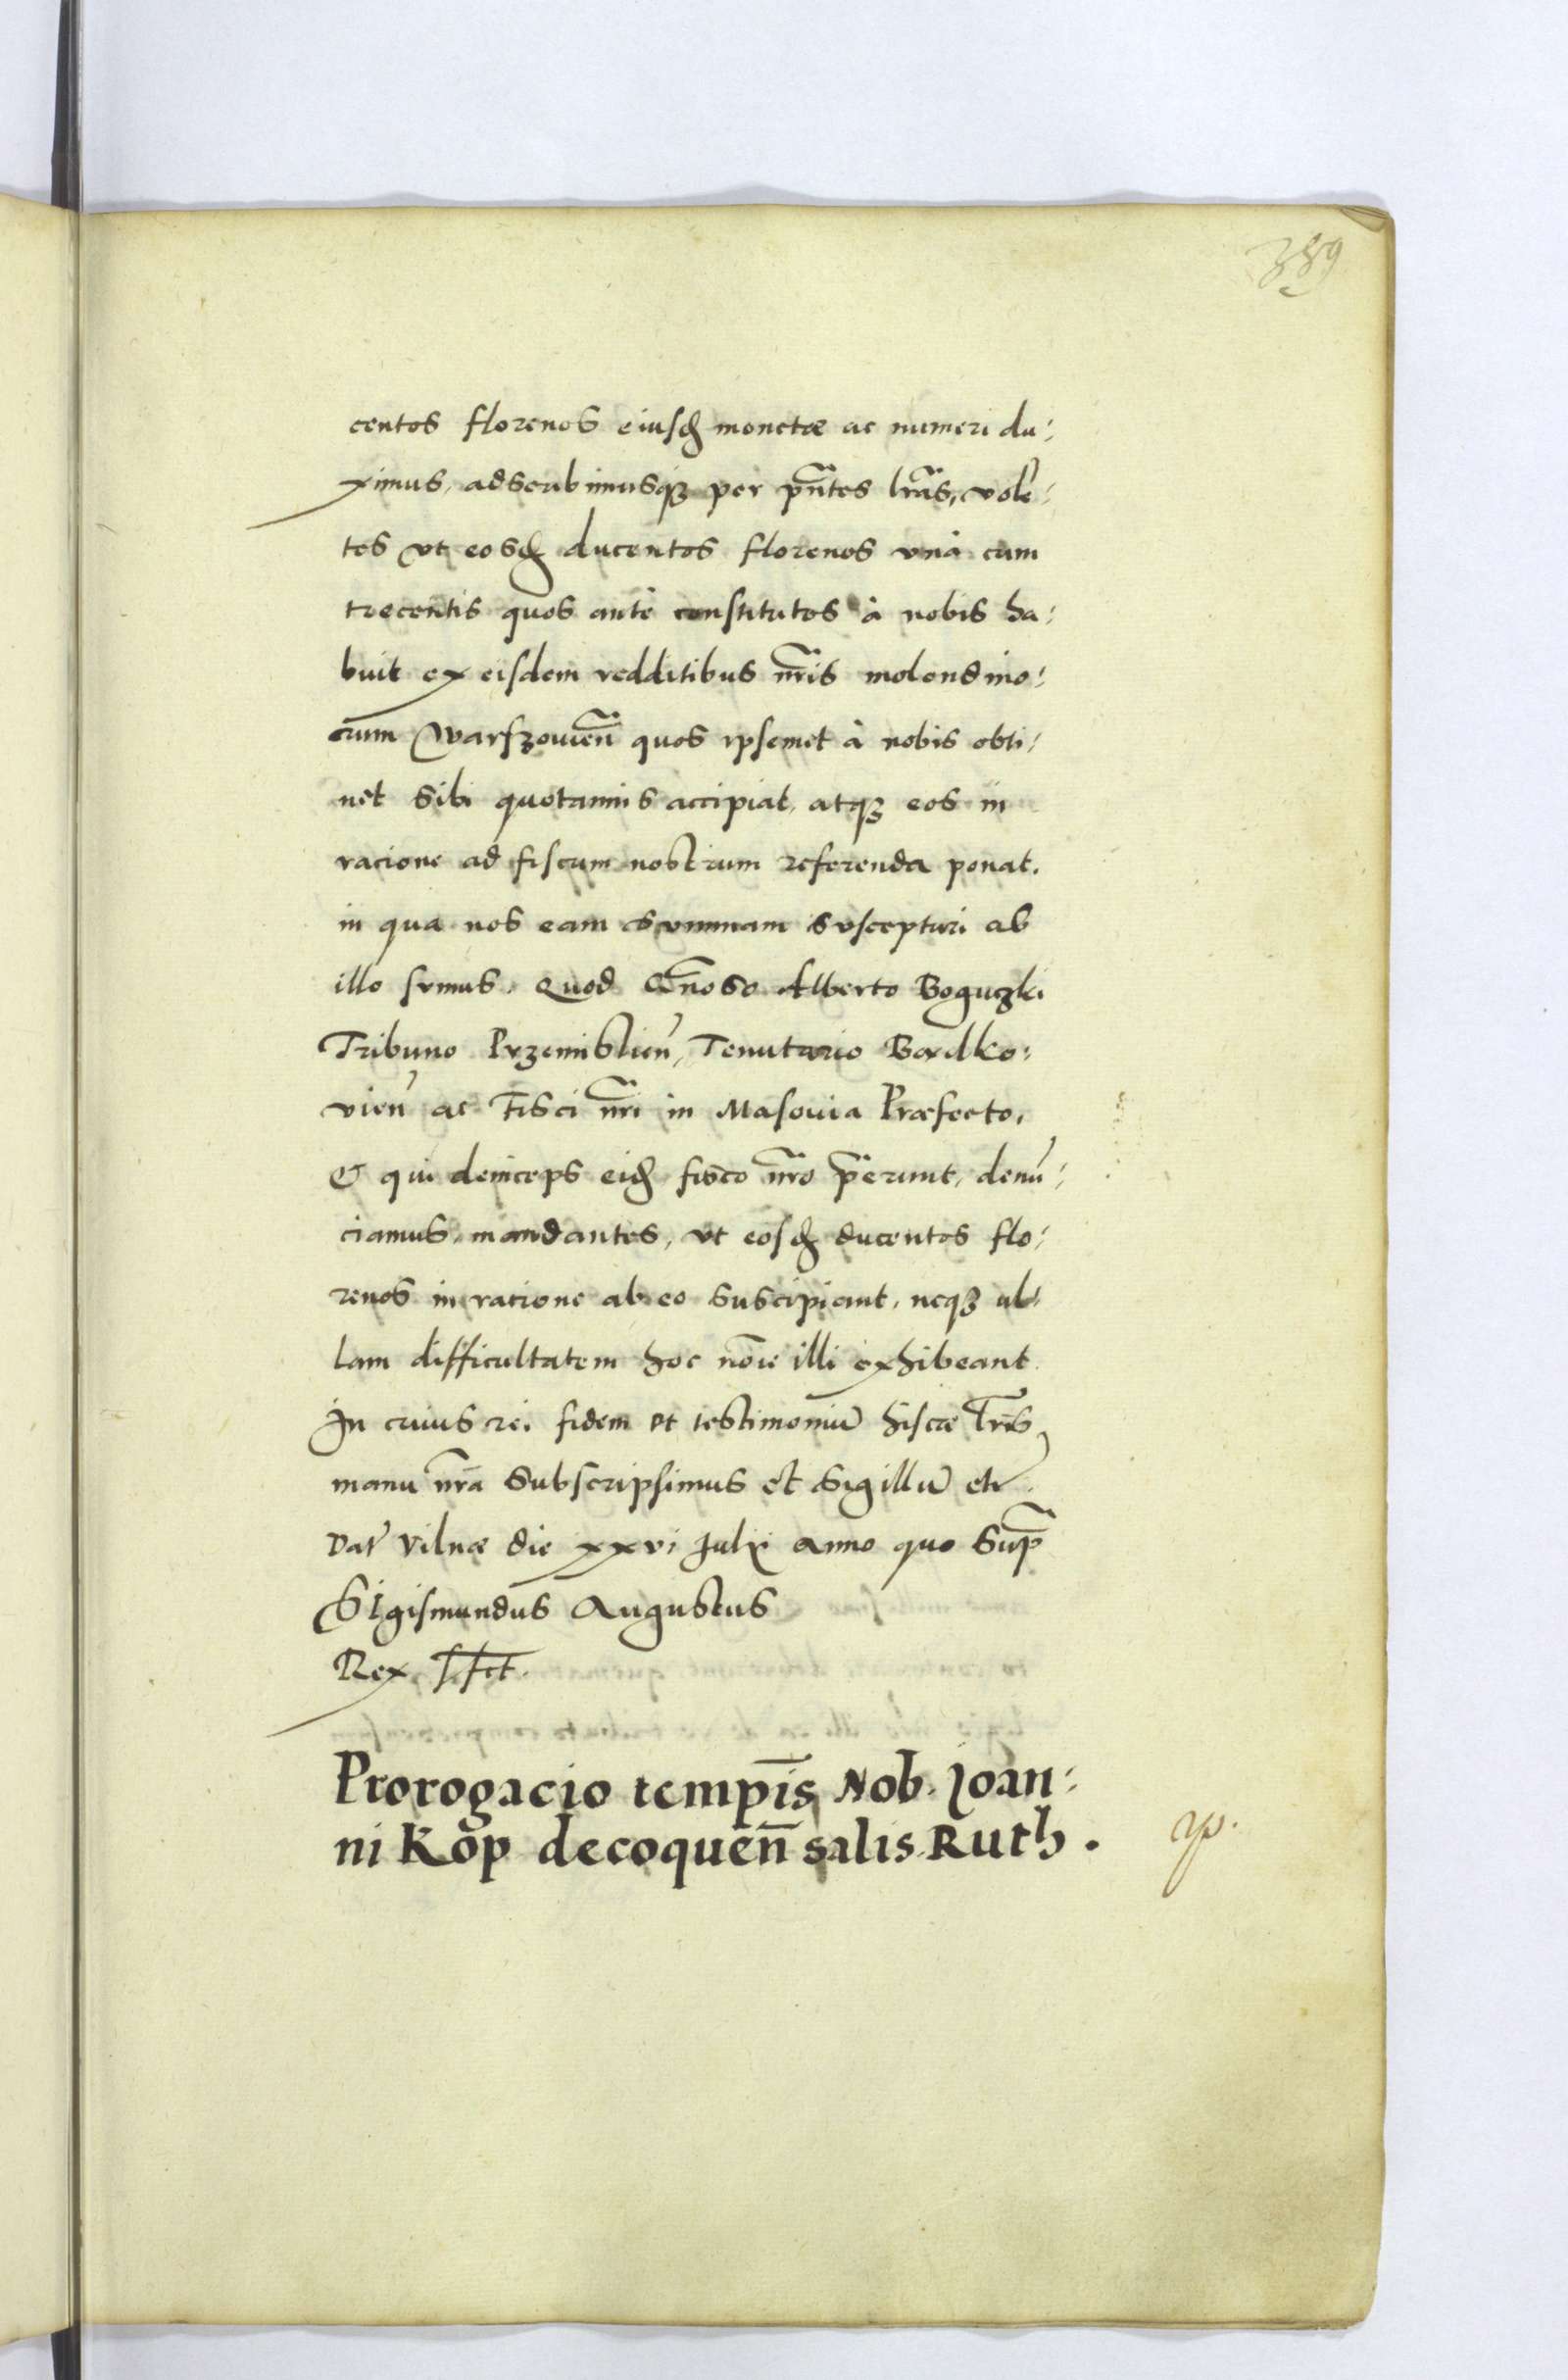 389
centos florenos eiusđ monetæ ac numeri du:
ximus, adscribimusqꝫ per pñtes lr̃as, volē:
tes vt eosđ ducentos florenos vnà cum
trecentis quos antè constitutos à nobis ha:
buit ex eisdem redditibus nr̃is molendino:
rum Warszouien̄ quos ipsemet à nobis obti:
net sibi quotannis accipiat, atqꝫ eos in
racione ad fiscum nostrum referenda ponat.
in qua nos eam summam suscepturi ab
illo sumus. Quod Gñoso Alberto Boguczki
Tribuno Przemisklien̄, Tenutario Bordko:
vien̄ ac Fisci nr̃i in Masouia Præfecto,
& qui deinceps eiđ fisco nr̃o p̃erunt, denū:
ciamus, mandantes, vt eosđ ducentos flo:
renos in ratione ab eo suscipiant, neqꝫ ul:
lam difficultatem hoc nōie illi exhibeant
In cuius rei fidem et testimoniū hisce lr̃is
manu nr̃a subscripsimus et sigillū etc̄.
Dat̄ Vilnæ die xxvi Julij anno quo sup̃
Sigismundus Augustus
Rex
Prorogacio temp̄is Nob. Joan:
ni Kop decoquen̄ salis Ruth.